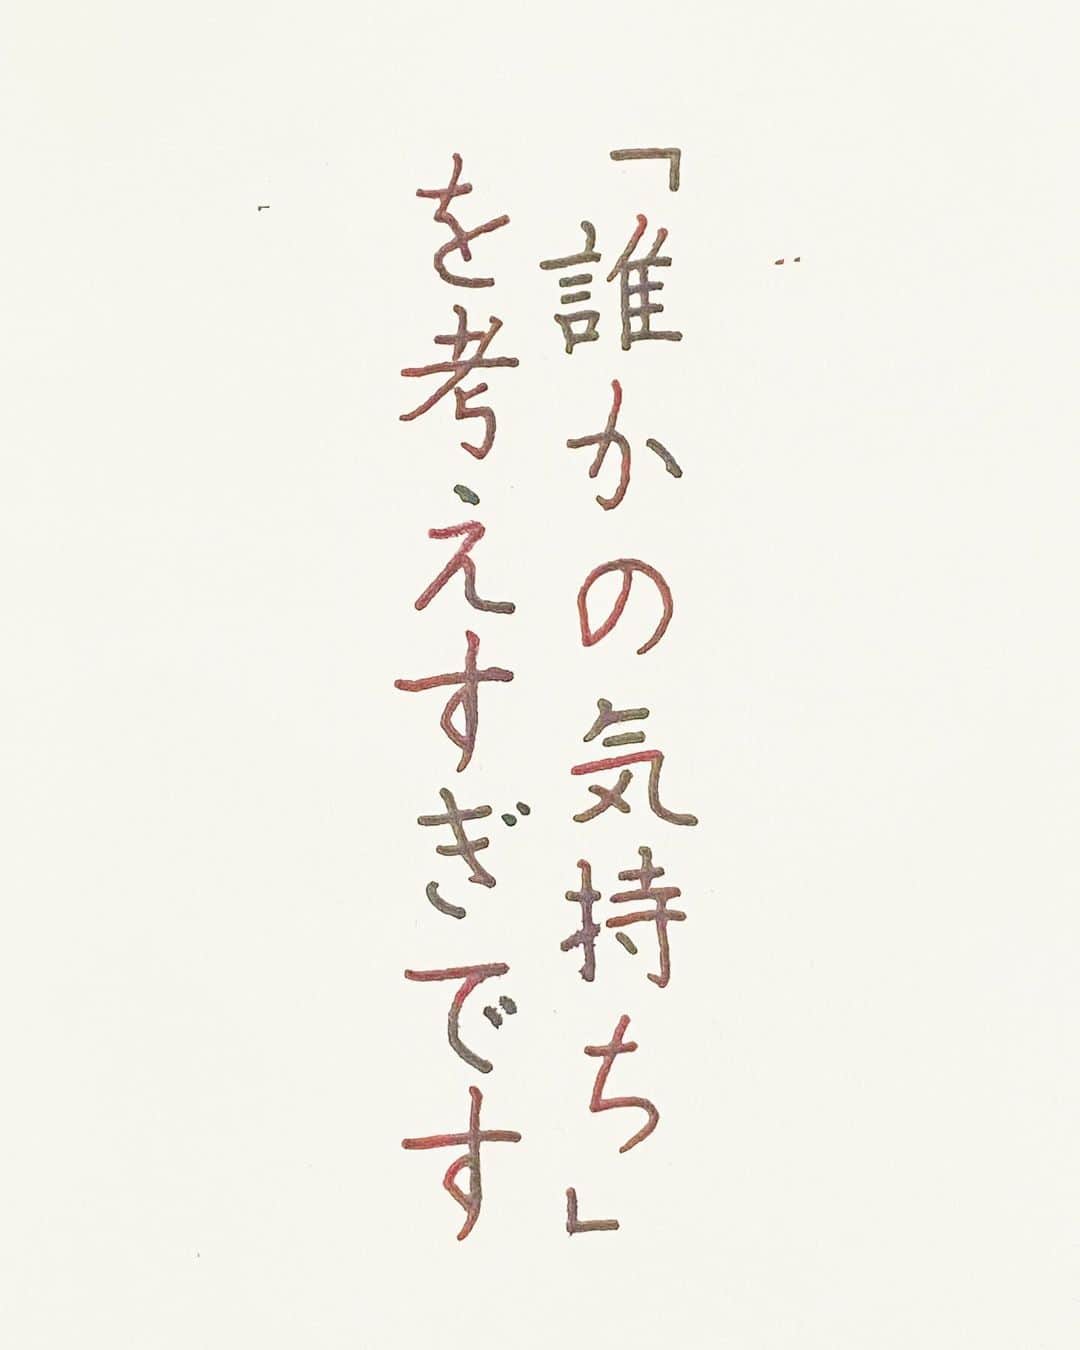 「誰かの気持ち」
を考えすぎです